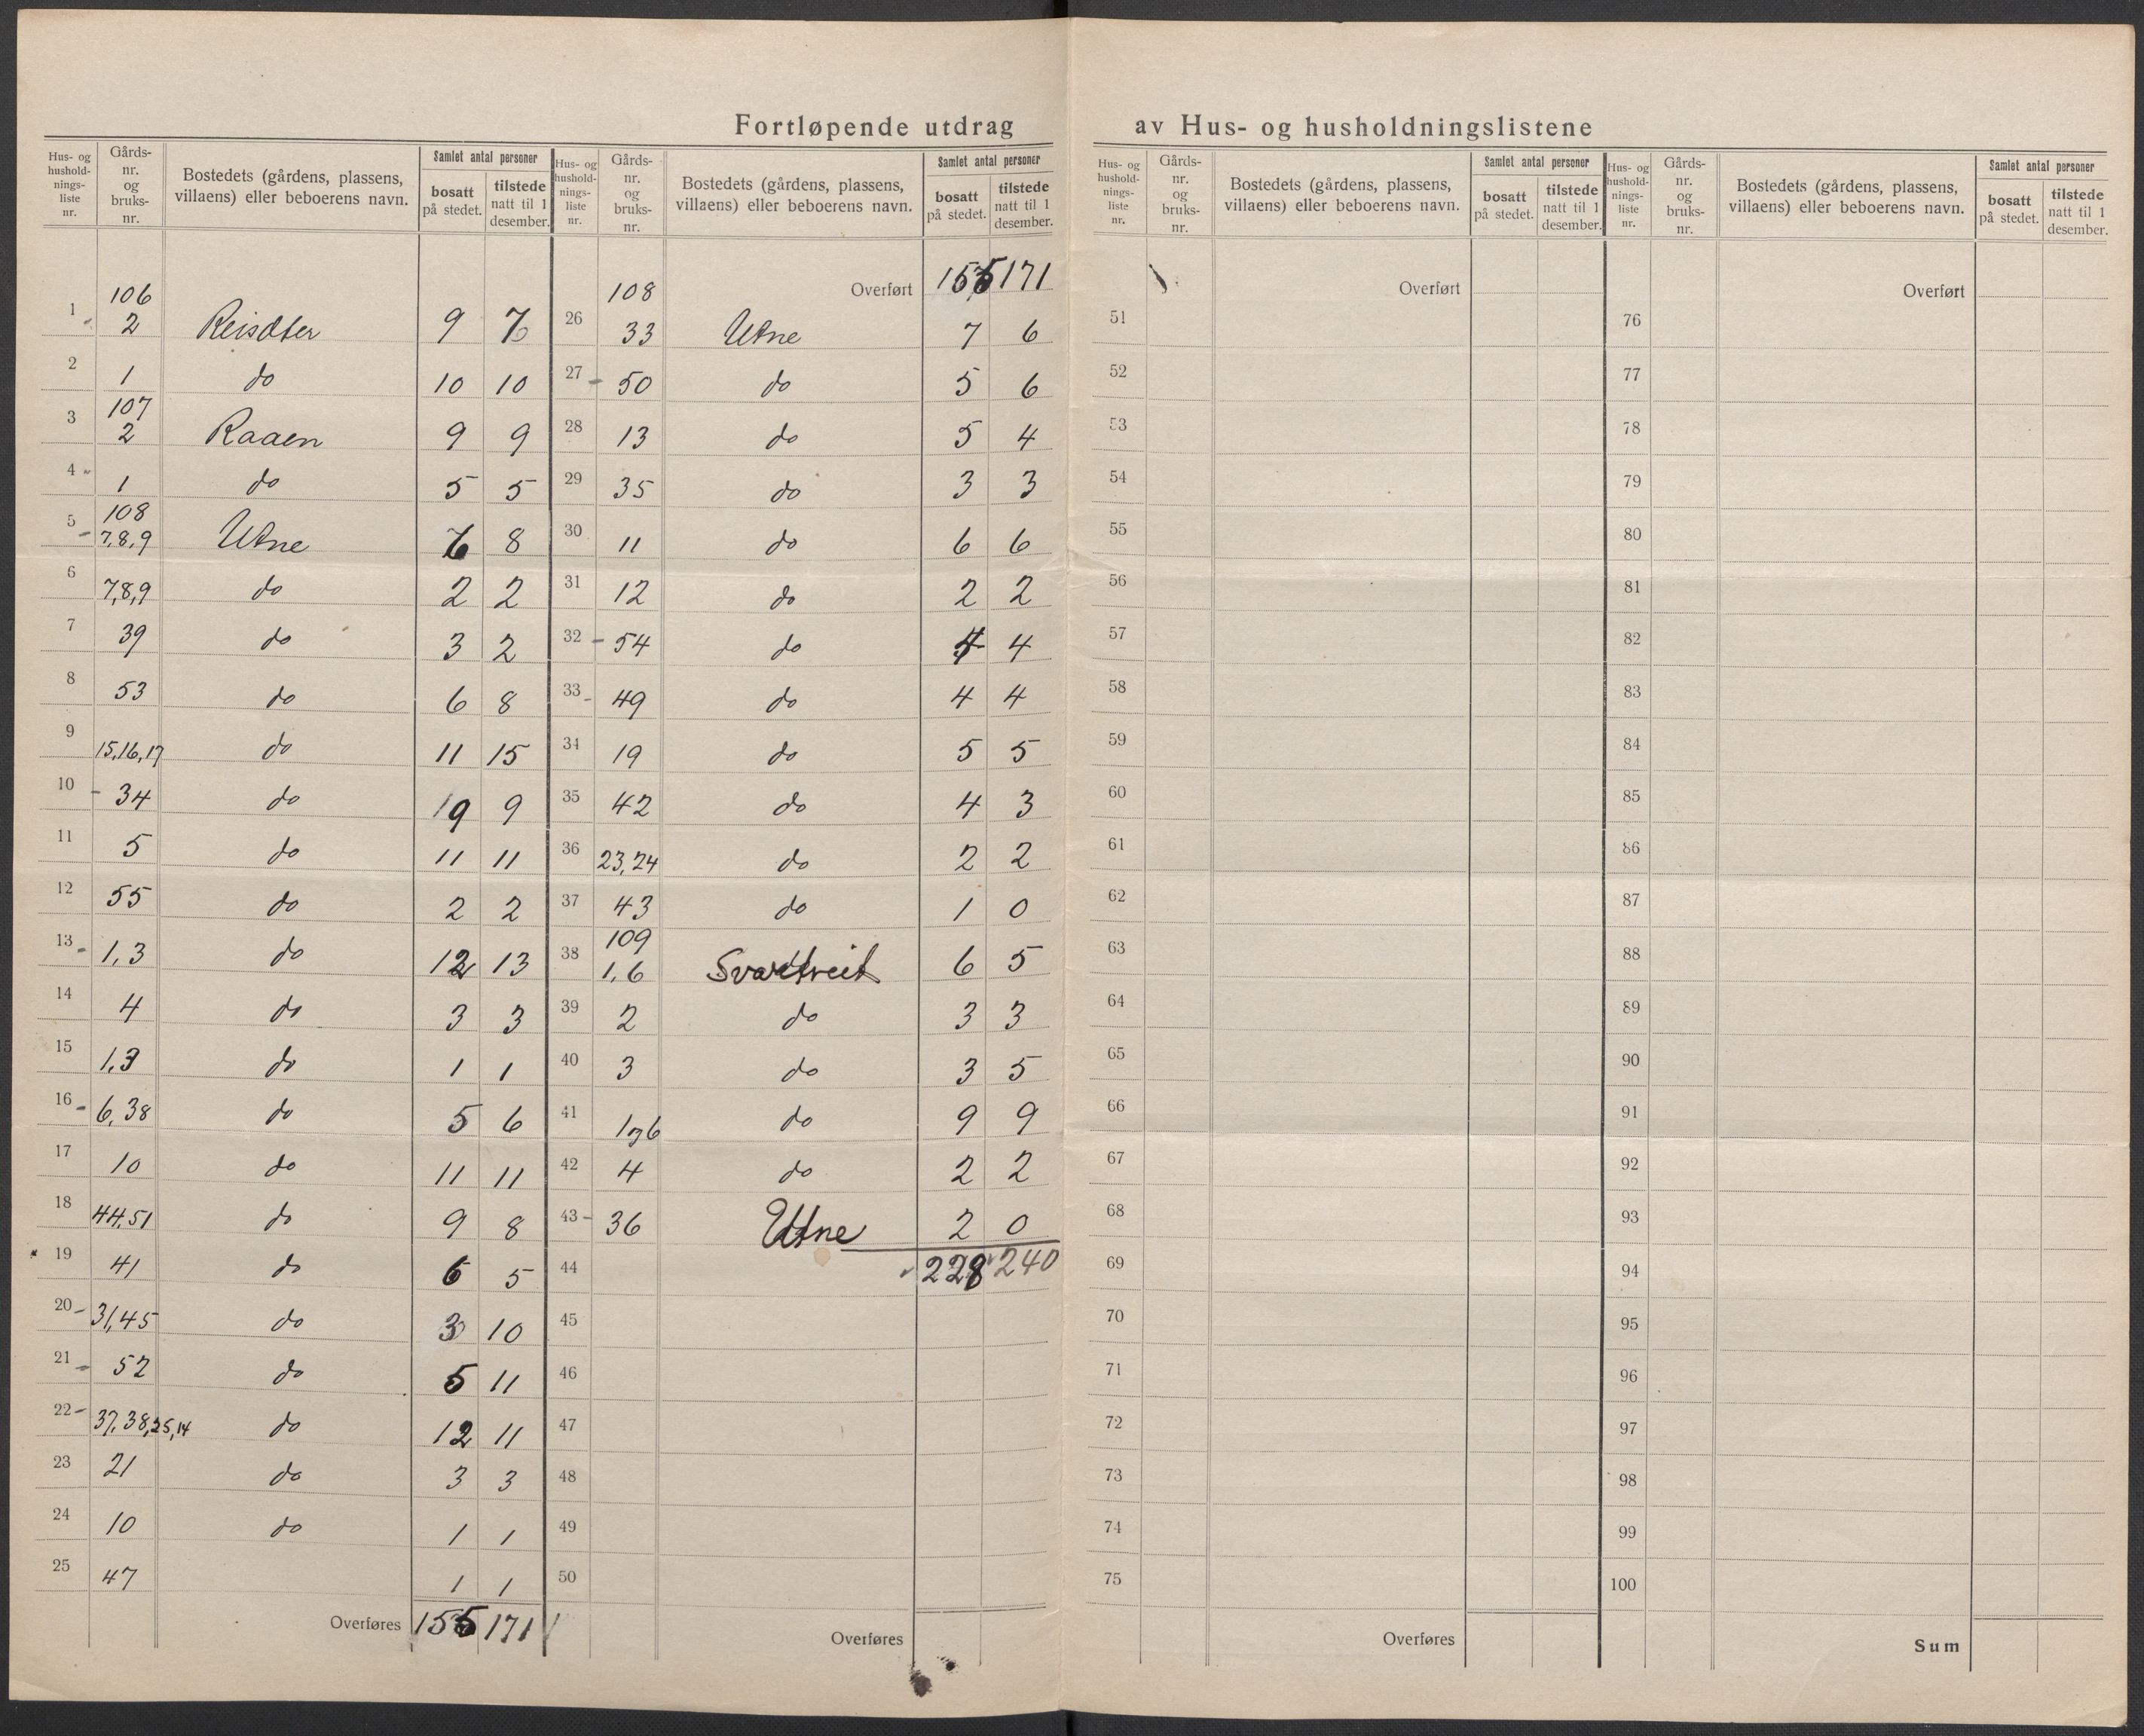 Fortløpende utdrag av Hus- og husholdningslistene
Hus- og hushold- nings- liste nr. | Gårds- nr. og bruks- nr. | Bostedets (gårdens, plassens, villaens) eller beboerens navn. | Samlet antal personer | bosatt på stedet. | tilstede natt til 1 desember.
Hus- og hushold- nings- liste nr. | Gårds- nr. og bruks- nr. | Bostedets (gårdens, plassens, villaens) eller beboerens navn. | Samlet antal personer | bosatt på stedet. | tilstede natt til 1 desember.
Hus- og hushold- nings- liste nr. | Gårds- nr. og bruks- nr. | Bostedets (gårdens, plassens, villaens) eller beboerens navn. | Samlet antal personer | bosatt på stedet. | tilstede natt til 1 desember.
Hus- og hushold- nings- liste nr. | Gårds- nr. og bruks- nr. | Bostedets (gårdens, plassens, villaens) eller beboerens navn. | Samlet antal personer | bosatt på stedet. | tilstede natt til 1 desember.
106
1 2 9
2 1 do 10 10
107
3 2 Raaen 9 9
4 1 do 5 5
108
5 7,8,9 Utne 8
6 7,8,9 do 2 2
7 39 do 3 2
8 53 do 6 8
9 15,16,17 do 11 15
10 34 do 9
11 5 do 11 11
12 55 do 2 2
13 1,3 do 12 13
14 4 do 3 3
15 1,3 do 1 1
16 6,38 do 5 6
17 10 do 11 11
18 44,51 do 9 8
19 41 do 6 5
20 31,45 do 3 10
21 52 do 5 11
22 37,38,25,14 do 12 11
23 21 do 3 3
24 10 do 1 1
25 47 1 1
Overføres 155 171
Overført 155 171
108
26 33 Utne 7 6
27 50 do 5 6
28 13 do 5 4
29 35 do 3 3
30 11 do 6 6
31 12 do 2 2
32 54 do 4
33 49 do 4 4
34 19 do 5 5
35 42 do 4 3
36 23,24 do 2 2
37 43 do 1 0
109
38 1,6 Svartveit 6 5
39 2 do 3 3
40 3 do 3 5
41 do 9 9
42 4 do 2 2
43 36 Utne 2 0
44 228 240
45
46
47
48
49
50
Overføres
Overført
51
52
53
54
55
56
57
58
59
60
61
62
63
64
65
66
67
68
69
70
71
72
73
74
75
Overføres
Overført
76
77
78
79
80
81
82
83
84
85
86
87
88
89
90
91
92
93
94
95
96
97
98
99
100
Sum